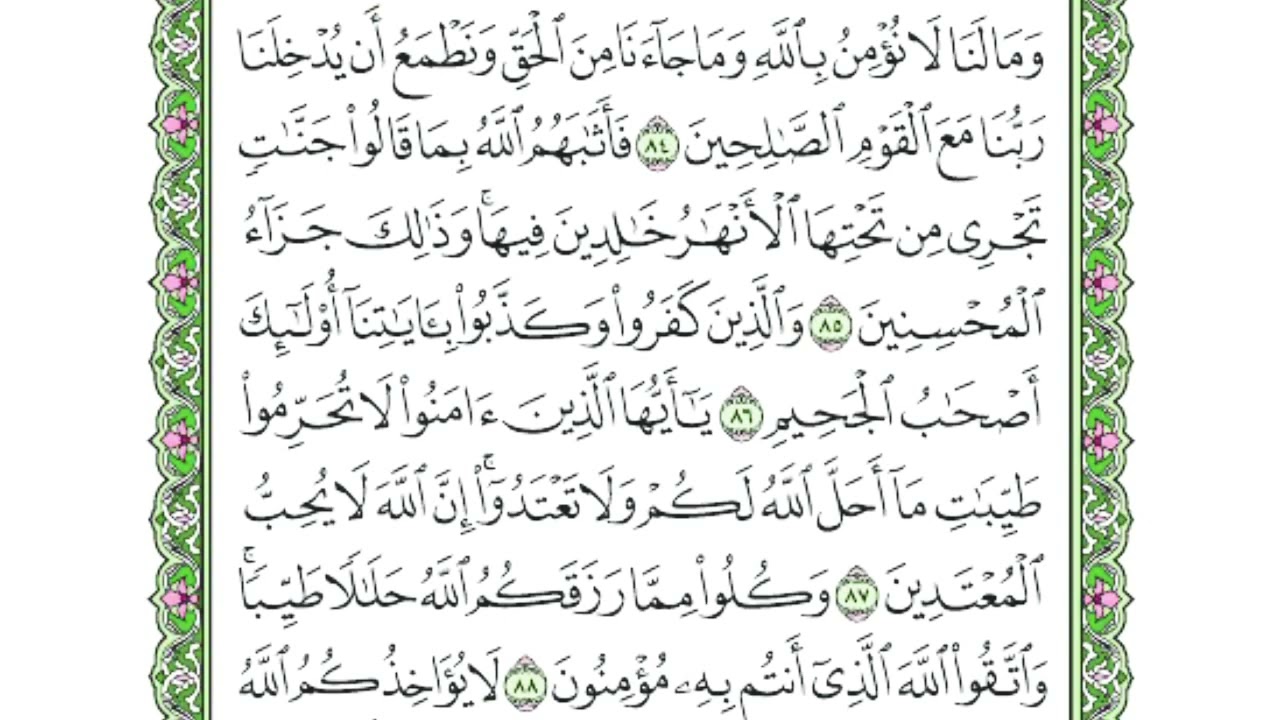 وَمَا لَنَا لَا نُؤْمِنُ بِٱللَّهِ وَمَا جَآءَنَا مِنَ ٱلْحَقِّ وَنَطْمَعُ أَن يُدْخِلَنَا
رَبُّنَا مَعَ ٱلْقَوْمِ ٱلصَّٰلِحِينَ ٨٤ فَأَثَٰبَهُمُ ٱللَّهُ بِمَا قَالُوا۟ جَنَّٰتٍ
تَجْرِى مِن تَحْتِهَا ٱلْأَنْهَٰرُ خَٰلِدِينَ فِيهَا ۚ وَذَٰلِكَ جَزَآءُ
ٱلْمُحْسِنِينَ ٨٥ وَٱلَّذِينَ كَفَرُوا۟ وَكَذَّبُوا۟ بِـَٔايَٰتِنَآ أُو۟لَٰٓئِكَ
أَصْحَٰبُ ٱلْجَحِيمِ ٨٦ يَٰٓأَيُّهَا ٱلَّذِينَ ءَامَنُوا۟ لَا تُحَرِّمُوا۟
طَيِّبَٰتِ مَآ أَحَلَّ ٱللَّهُ لَكُمْ وَلَا تَعْتَدُوٓا۟ ۚ إِنَّ ٱللَّهَ لَا يُحِبُّ
ٱلْمُعْتَدِينَ ٨٧ وَكُلُوا۟ مِمَّا رَزَقَكُمُ ٱللَّهُ حَلَٰلًا طَيِّبًا ۚ
وَٱتَّقُوا۟ ٱللَّهَ ٱلَّذِىٓ أَنتُم بِهِۦ مُؤْمِنُونَ ٨٨ لَا يُؤَاخِذُكُمُ ٱللَّهُ